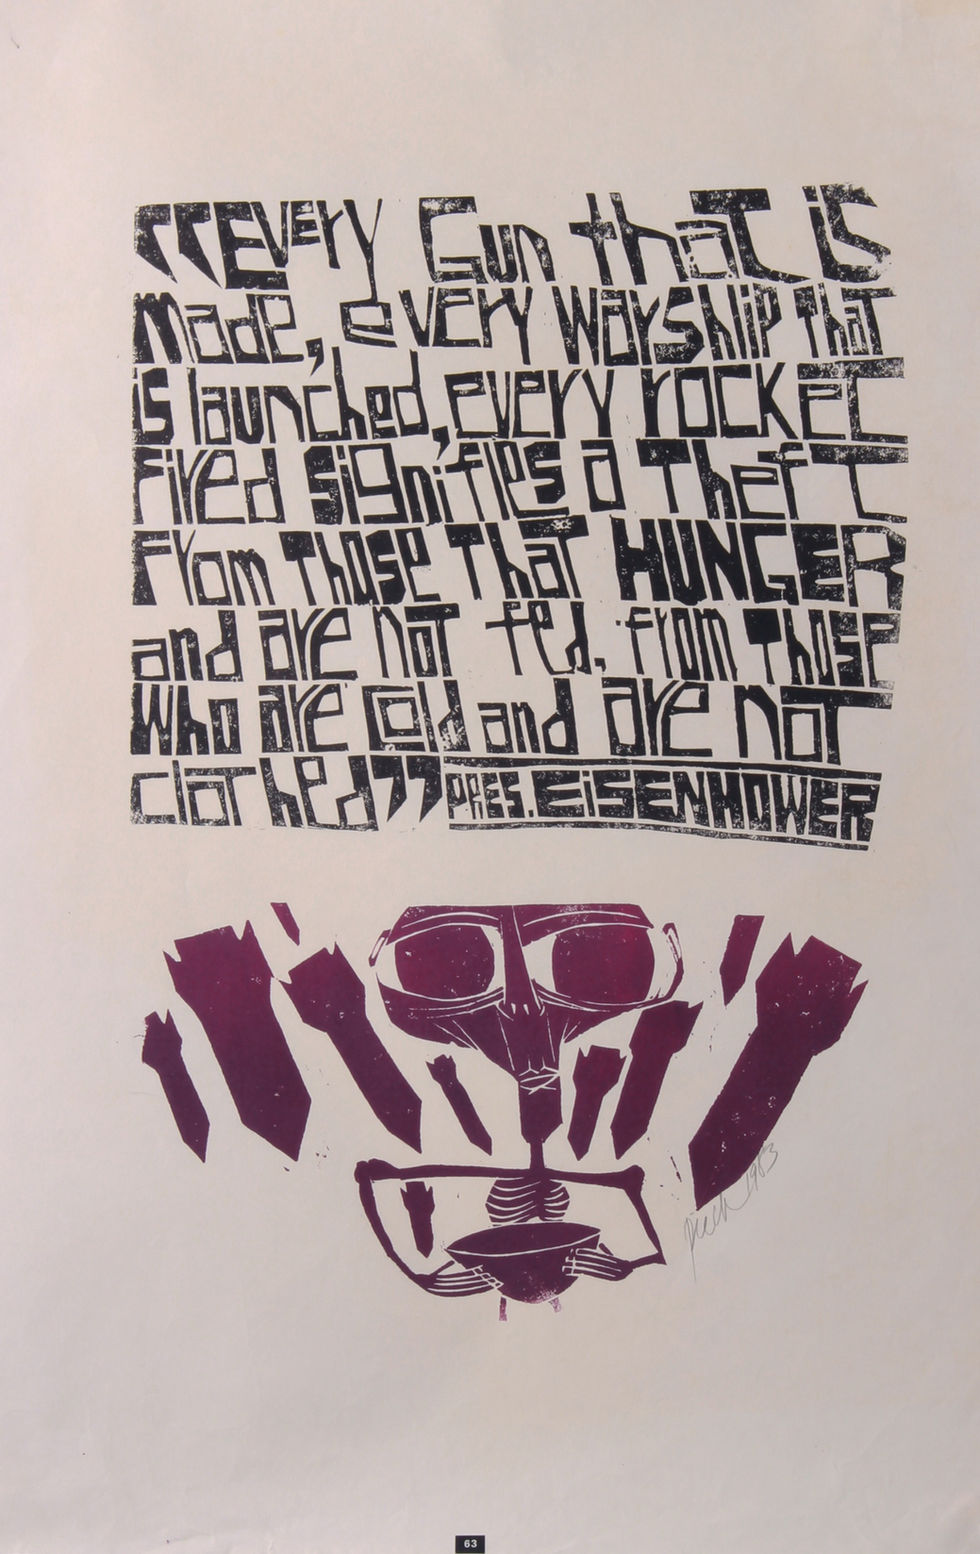 “Every Gun that is
made, every warship that
is launched, every rocket
Fired signifies a Theft
From Those That HUNGER
and are not fed. from Those
Who are cold and are not
clothed” PRES. EiSENHOWER
1983
63